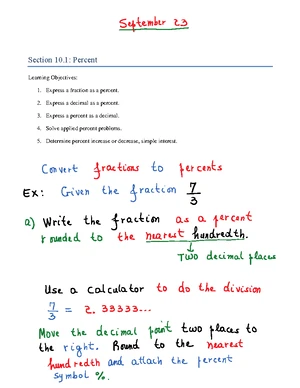 September 23
Section 10.1: Percent
Learning Objectives:
1. Express a fraction as a percent.
2. Express a decimal as a percent.
3. Express a percent as a decimal.
4. Solve applied percent problems.
5. Determine percent increase or decrease, simple interest.
Convert fractions to percents
Ex: Given the fraction 7/3
a) Write the fraction as a percent
rounded to the nearest hundredth.
↓
Two decimal places
Use a calculator to do the division
7/3 = 2.33333...
Move the decimal point two places to
the right. Round to the nearest
hundredth and attach the percent
symbol %.